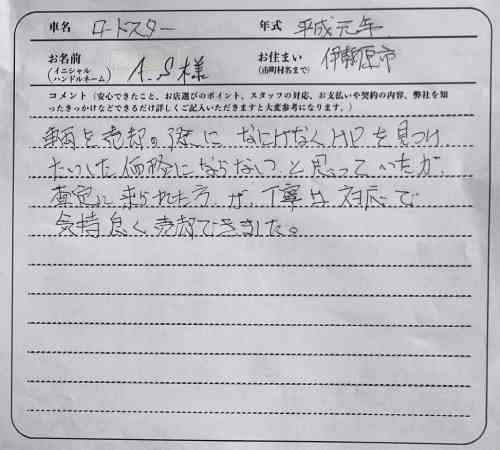 車名 ロードスター 年式 平成元年
お名前 (イニシャル ハンドルネーム) A.S様 お住まい (市町村名まで) 伊勢原市
コメント（安心できたこと、お店選びのポイント、スタッフの対応、お支払いや契約の内容、弊社を知
ったきっかけなどできるだけ詳しくご記入いただきますと大変参考になります。）
車両を売却の際に なにげなくHPを見つけ
たいした価格にならないと思っていたが
査定に来られた方が、丁寧な対応で
気持良く売却できました。